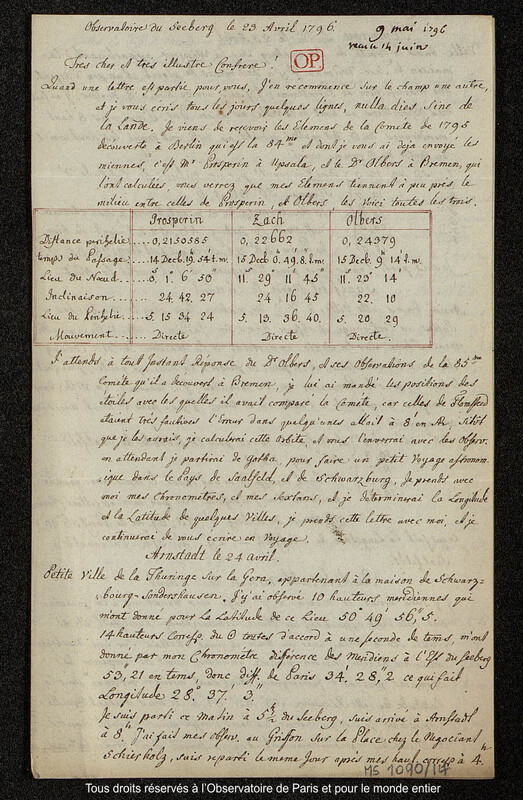 Observatoire du Seeberg le 23 Avril 1796.
9 mai 1796
recu le 14 juin
Très cher et très illustre Confrere!
OP
Quand une lettre est partie pour vous, j'en recommence sur le champ une autre,
et je vous ecris tous les jours quelques lignes, nulla dies sine de
la Lande. Je viens de recevoir les Elemens de la Comete de 1795
decouverte à Berlin qui est la 84me et dont je vous ai deja envoyé les
miennes, c'est Mr Prosperin à Upsala, et le Dr Olbers à Bremen, qui
l'ont calculées, vous verrez que mes Elemens tiennent à peu près le
milieu entre celles de Prosperin, et Olbers les voici toutes les trois.
Prosperin Zach Olbers
Distance perihelie.... 0,2150585 0,22662 0,24379
temps du Passage... 14 Decb. 19h 54' t.m. 15 Decb 0h 49' 8" t.m. 15 Decb 9h 14' t.m.
Lieu du Nœud.... 0s 1° 6' 50" 11s 29° 11' 45" 11s 23° 14'
Inclinaison.... 24 42 27 24 16 45 22 10
Lieu du Périhelie... 5 15 34 24 5. 13. 36. 40. 5. 20 29
Mouvement.. Directe Directe Directe.
J'attends à tout Instant Réponse du Dr Olbers, et ses Observations de la 85me
Comète qu'il a decouvert à Bremen, je lui ai mandé les positions des
etoiles avec les quelles il avait comparé la Comète, car celles de Flamsteed
etaient très fautives l'Erreur dans quelqu'unes allait à 8' en AR, Sitôt
que je les aurais, je calculerai cette Orbite, et vous l'enverrai avec les Observ.
en attendant je partirai de Gotha pour faire un petit Voyage astronom-
ique dans le Pays de Saalfeld, et de Schwarzburg, Je prends avec
moi mes Chronomètres, et mes Sextans, et je determinerai la Longitude
et la Latitude de quelques Villes, je prends cette lettre avec moi, et je
continuerai de vous ecrire en Voyage.
Arnstadt le 24 avril.
Petite Ville de la Thuringe sur la Gera, appartenant à la maison de Schwarz-
bourg-Sondershausen. J'y ai observé 10 hauteurs meridiennes qui
m'ont donné pour la Latitude de ce Lieu 50° 49' 56",5.
14 hauteurs Corresp. du ☉ toutes d'accord à une seconde de tems, m'ont
donné par mon Chronomètre difference des Meridiens à l'Est du Seeberg
53",21 en tems, donc diff. de Paris 34' 28",2 ce qui fait
Longitude 28° 37' 3"
Je suis parti ce matin à 5h½ du Seeberg, suis arrivé à Arnstadt
à 8h J'ai fais mes observ. au Griffon sur la Place chez le Negociant
Schierholz, suis reparti le meme Jour après mes haut. corresp à 4h
MS 1090/14
Tous droits réservés à l'Observatoire de Paris et pour le monde entier